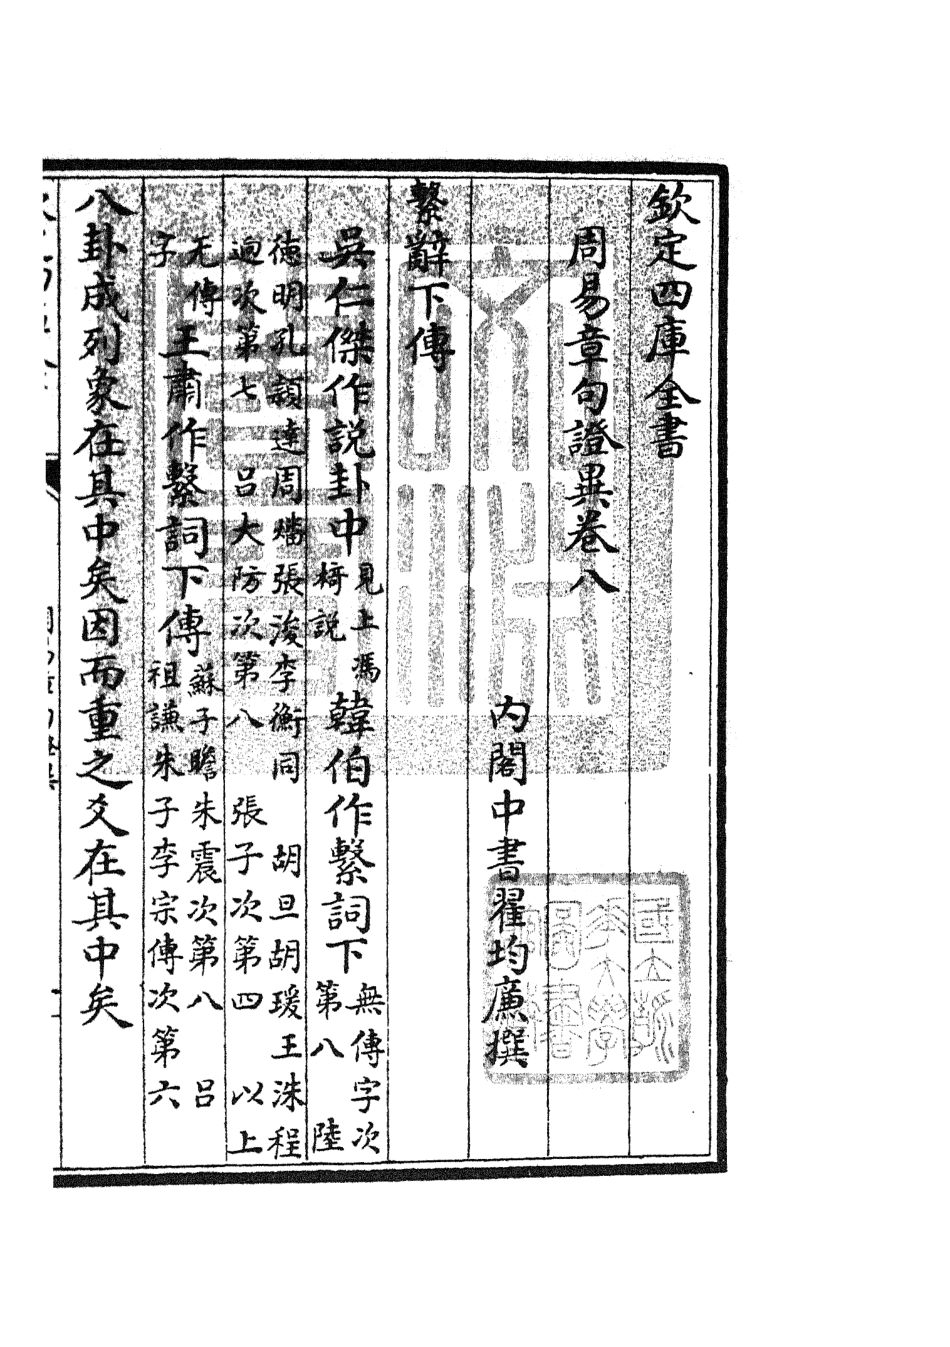 欽定四庫全書
周易章句證異卷八
內閣中書翟均廉撰
繫辭下傳
吳仁傑作説卦中見上馮椅説韓伯作繫詞下無傳字次第八 陸
徳明孔穎達周燔張浚李衡同 胡旦胡瑗王洙程
迥次第七 呂大防次第八 張子次第四 以上
无傳字王肅作繫詞下傳蘇子瞻朱震次第八 呂祖謙朱子李宗傳次第六
八卦成列象在其中矣因而重之爻在其中矣